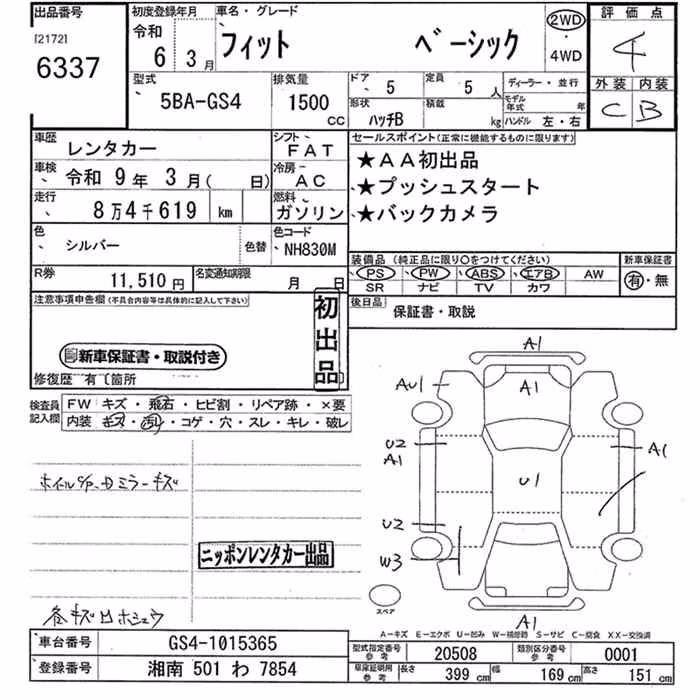 出品番号 初度登録年月 車名・グレード 評価点
[2172] 令和 フィット ベーシック 2WD
6337 6年 3月 4WD 4
型式 排気量 ドア 5 定員 5人 ディーラー・並行 外装 内装
5BA-GS4 1500cc 形状 ハッチB 積載 kg モデル年式 年 C B
ハンドル 左・右
車歴 レンタカー シフト FAT セールスポイント(正常に機能するものに限ります)
車検 令和 9年 3月( 日) 冷房 AC ★AA初出品
走行 8万4千619 km 燃料 ガソリン ★プッシュスタート
★バックカメラ
色 シルバー 色替 色コード NH830M
装備品(純正品に限り○をつけてください) 新車保証書
R券 11,510円 名変通知期限 月 日 PS PW ABS エアB AW 有・無
SR ナビ TV カワ
注意事項申告欄(不具合内容等は具体的に記入して下さい) 初出品 後日品 保証書・取説
新車保証書・取説付き
修復歴 有〔箇所
検査員記入欄 FW キズ・飛石・ヒビ割・リペア跡・×要
内装 キズ・汚れ・コゲ・穴・スレ・キレ・破レ
A1
AU1 A1
U2 A1
A1 U1
U2
W3
A1
スペア
ミラーキズ
ニッポンレンタカー出品
各キズ凹
A-キズ E-エクボ U-凹み W-補修跡 S-サビ C-腐食 XX-交換済
車台番号 GS4-1015365 型式指定番号 参考 20508 類別区分番号 参考 0001
登録番号 湘南 501 わ 7854 車庫証明用 参考 長さ 399cm 幅 169cm 高さ 151cm